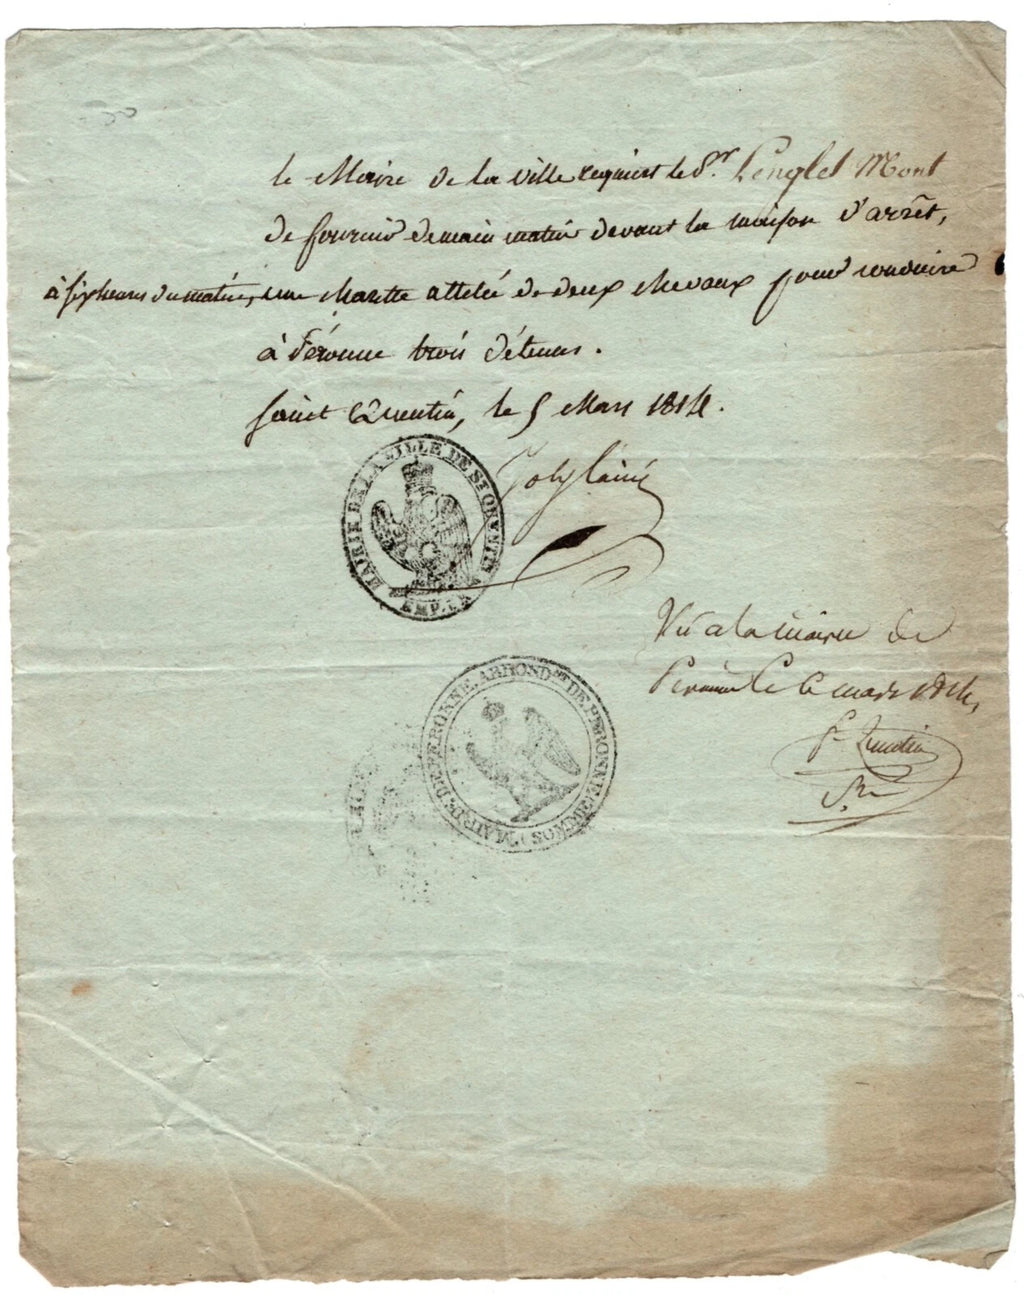 le Maire de la ville requiert le Sr. Lenglet Mont
de fournir demain matin devant la maison d'arrêt,
à six heures du matin, une charette attelée de deux chevaux pour conduire
à Péronne trois détenus.
Saint Quentin, le 5 Mars 1814.
Joly l'ainé
MAIRIE DE LA VILLE DE ST QUENTIN
EMPIRE
Vu a la mairie de
Peronne Le 6 mars 1814,
MAIRIE DE PERONNE, ARROND.T DE PERONNE